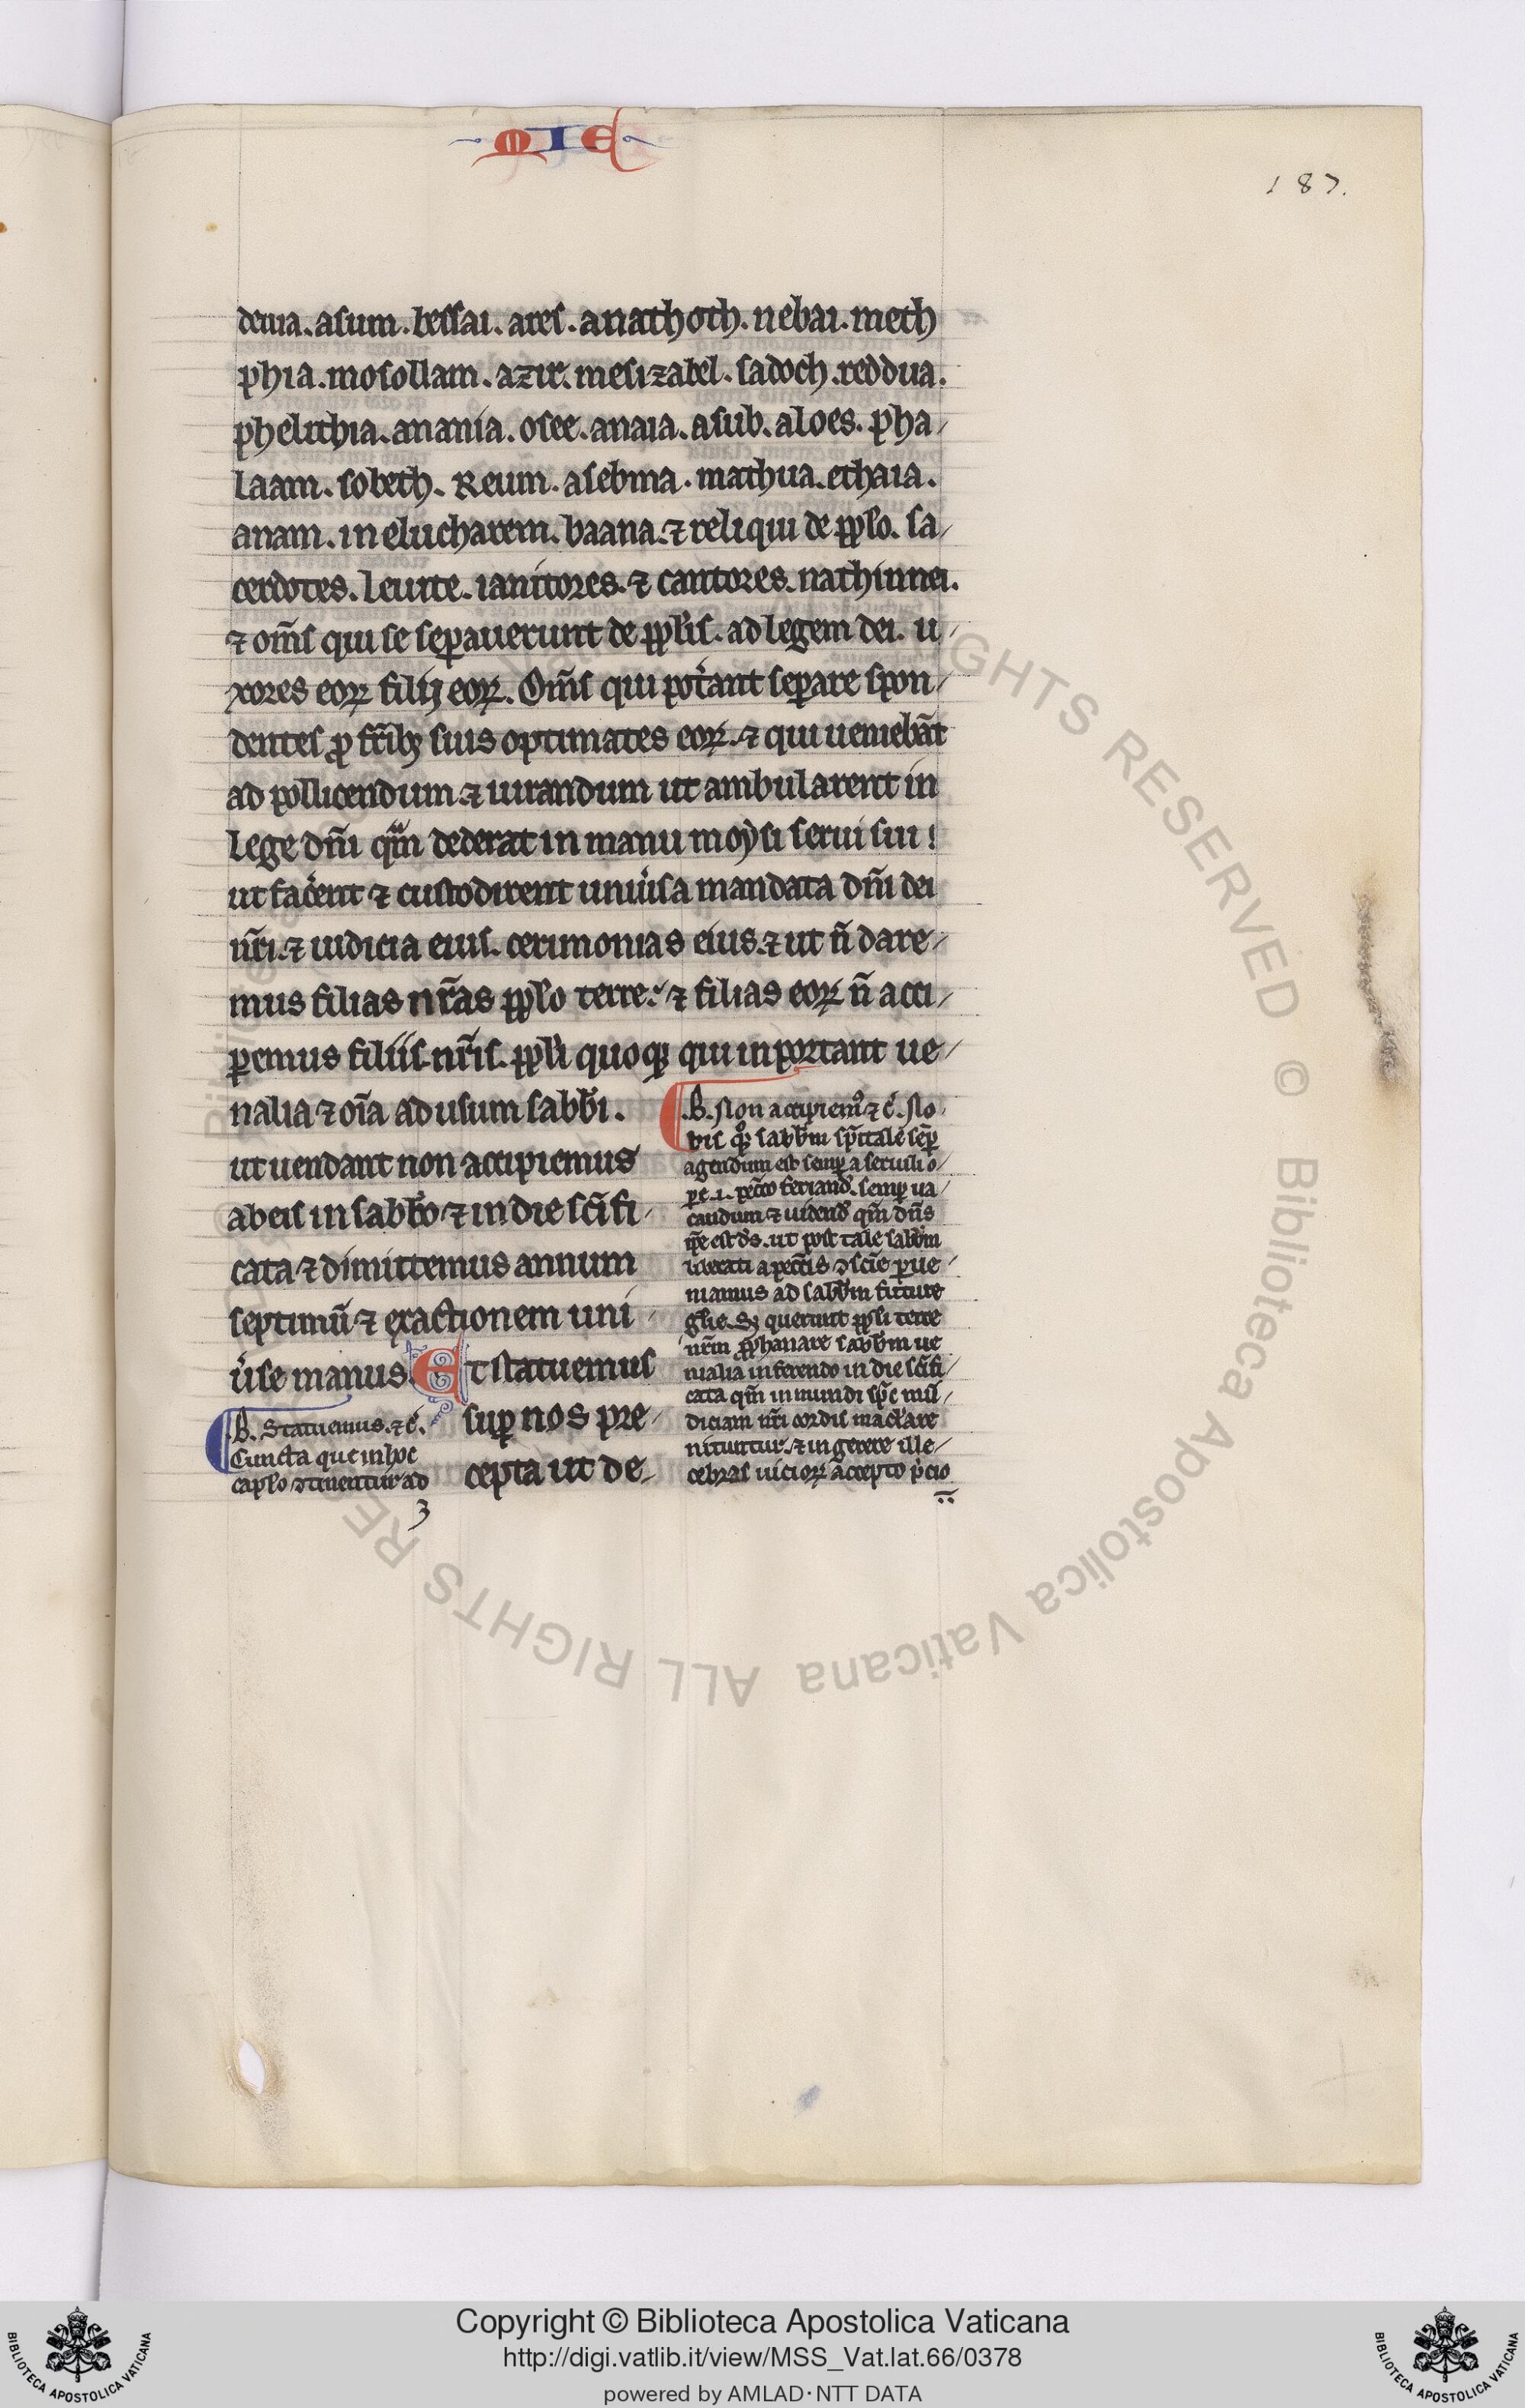 MIE
187.
denia. asum. bessai. ares. anathoth. nebai. meth
phia. mosollam. azir. mesizabel. sadoch. reddua.
phelithia. anania. osee. anaia. asub. aloes. pha/
laam. sobeth. Reum. asebina. mathua. ethaia.
anam. in elucharem. baana. ⁊ reliqui de pplo. sa/
cerdotes. leuite. ianitores. ⁊ cantores. nathinnei.
⁊ om̄s qui se seꝑauerunt de pplis. ad legem dei. u/
xores eoꝝ filij eoꝝ. Om̄s qui pot̾ant seꝑare spon/
dentes ꝓ fr̄ibꝫ suis optimates eoꝝ. ⁊ qui ueniebāt
ad pollicendum ⁊ iurandum ut ambularent in
lege dn̄i qm̄ dederat in manu moẏsi serui sui!
ut fac̾ent ⁊ custodirent uniu̾sa mandata dn̄i dei
nr̄i. ⁊ iudicia eius. cerimonias eius. ⁊ ut n̄ dare/
mus filias nr̄as pplo terre. ⁊ filias eoꝝ n̄ acci/
ꝑemus filiis nr̄is. ppli quoqꝫ qui inportant ue/
nalia ⁊ oīa ad usum sabb̄i.
ut uendant non accipiemus
ab eis in sabb̄o ⁊ in die sc̄ifi/
cata ⁊ dimittemus annum
septimū ⁊ exactionem uni/
u̾se manus. Et statuemus
suꝑ nos pre/
cepta ut de/
.B. Statuemus. ⁊ c̾.
Cuncta que in hoc
cap̄lo ꝯtinentur ad
3
.B. Non accipiemꝰ ⁊ c̾. No/
bis qͦqꝫ sabb̄m sp̄itale sēꝑ
agendum est semꝑ a seruili o/
ꝑe .i. pecc̄o feriand̄. semꝑ ua/
candum ⁊ uidend̄ qm̄ dn̄s
ip̄e est d̄s. ut post tale sabb̄m
liberati a pecc̄is ꝯscīe ꝑue/
niamus ad sabb̄m future
gl̄ie. Sꝫ querunt ppli terre
nr̄m ꝓphanare sabb̄m ue
nalia inferendo in die sc̄ifi/
cata qm̄ inmundi sp̄c mū/
diciam nr̄i cordis mac̾lare
nituntur. ⁊ ingerere ille/
cebras uicioꝝ accepto p̾cio
Copyright © Biblioteca Apostolica Vaticana
http://digi.vatlib.it/view/MSS_Vat.lat.66/0378
powered by AMLAD·NTT DATA
BIBLIOTECA APOSTOLICA VATICANA
BIBLIOTECA APOSTOLICA VATICANA
© Biblioteca Apostolica Vaticana ALL RIGHTS RESERVED